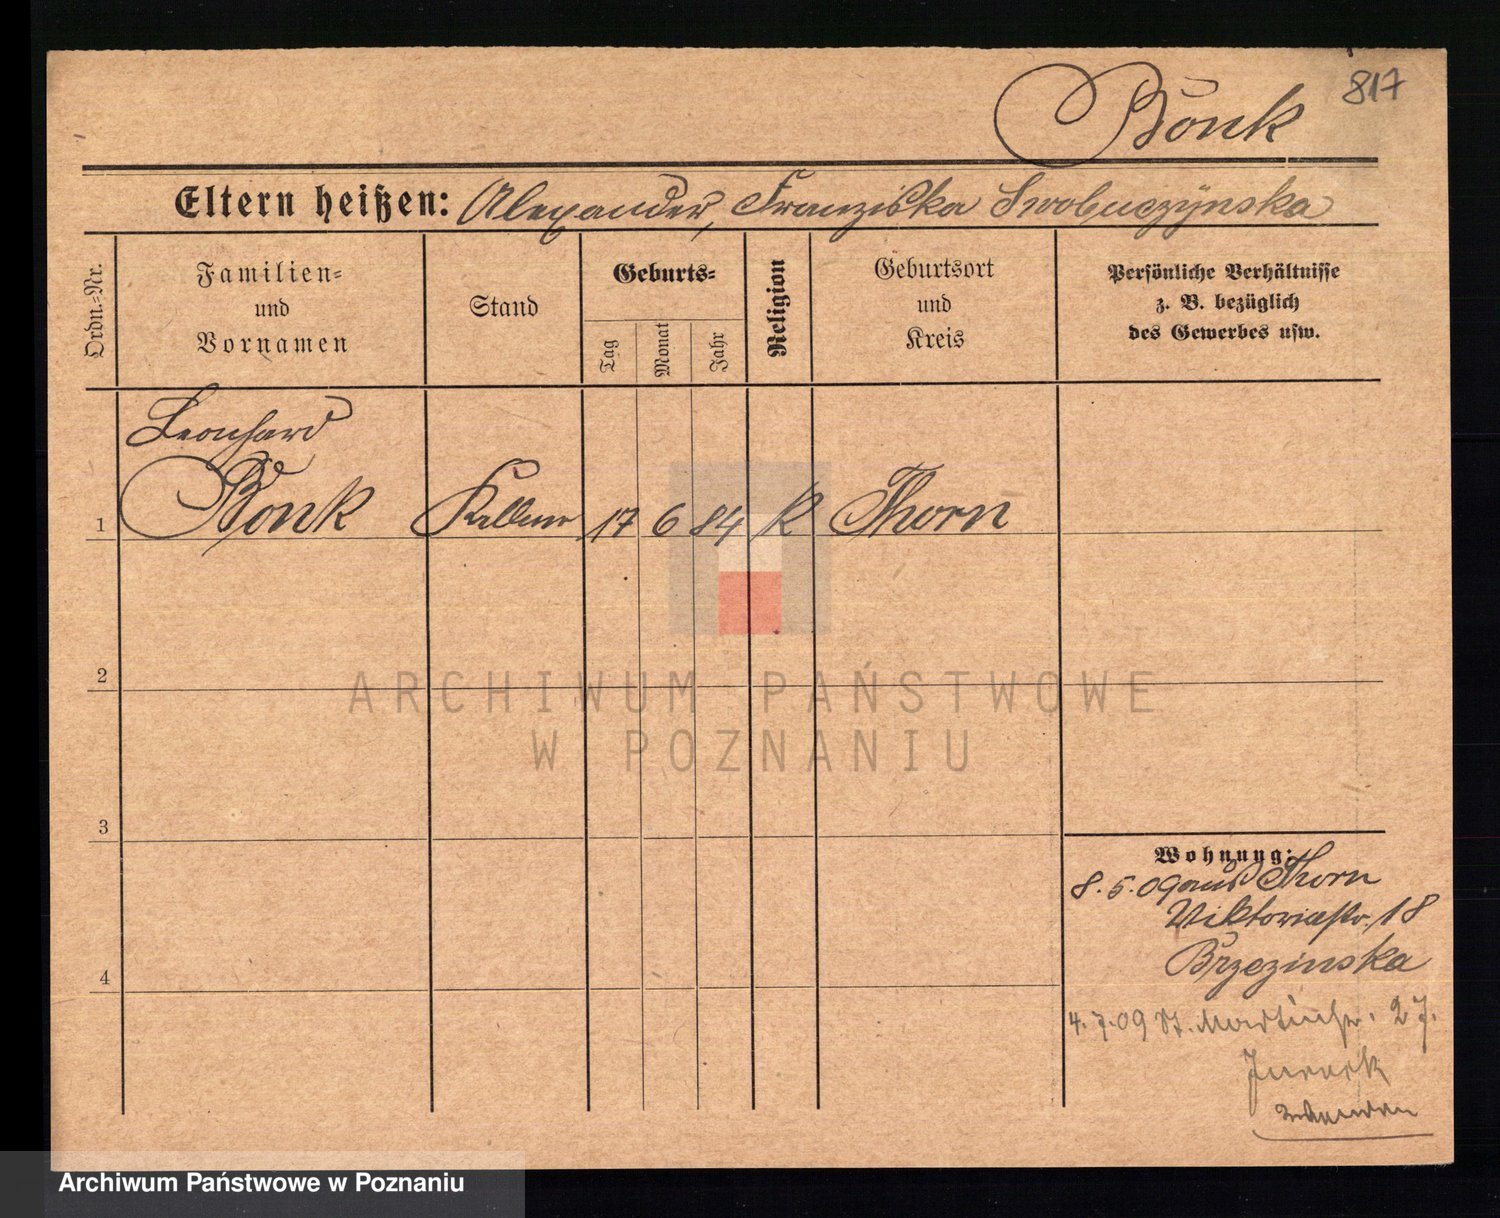 817
Bonk
Eltern heißen: Alexander, Franziska Swobuczynska
Ordn.-Nr.
Familien-
und
Vornamen
Stand
Geburts-
Tag
Monat
Jahr
Religion
Geburtsort
und
Kreis
Persönliche Verhältnisse
z. B. bezüglich
des Gewerbes usw.
Leonhard
1 Bonk Kellner 17 6 84 K Thorn
2
3
4
Wohnung:
8.5.09 aus Thorn
Viktoriastr. 18
Brzezinska
4.7.09 St. Martinstr. 27.
ARCHIWUM PAŃSTWOWE
W POZNANIU
Archiwum Państwowe w Poznaniu